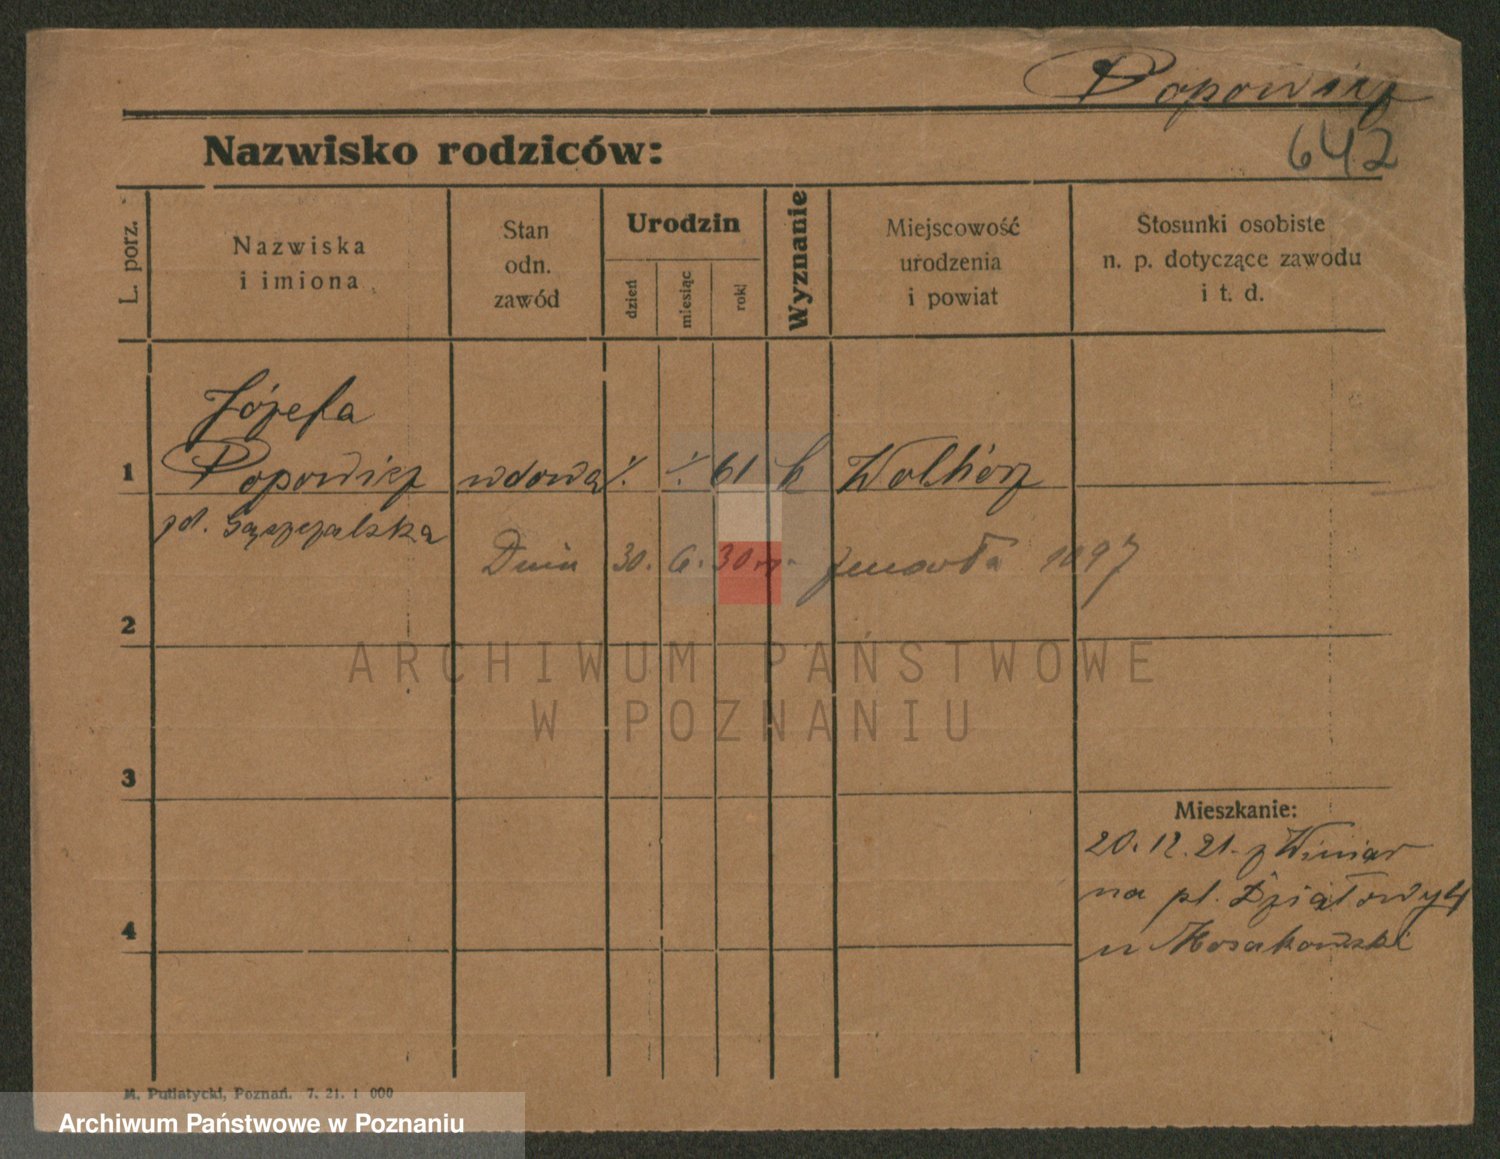 Popowicz
642
Nazwisko rodziców:
L. porz.
Nazwiska
i imiona
Stan
odn.
zawód
Urodzin
dzień
miesiąc
rok
Wyznanie
Miejscowość
urodzenia
i powiat
Stosunki osobiste
n. p. dotyczące zawodu
i t. d.
Józefa
1 Popowicz wdowa /. /. 61 k Wolbórz
Dnia 30. 6. 30 r. zmarła 1097
2
ARCHIWUM PAŃSTWOWE
W POZNANIU
3
Mieszkanie:
20.12.21. z Winiar
na pl. Działowy
4
u Mosakowski
M. Putiatycki, Poznań. 7. 21. 1 000
Archiwum Państwowe w Poznaniu